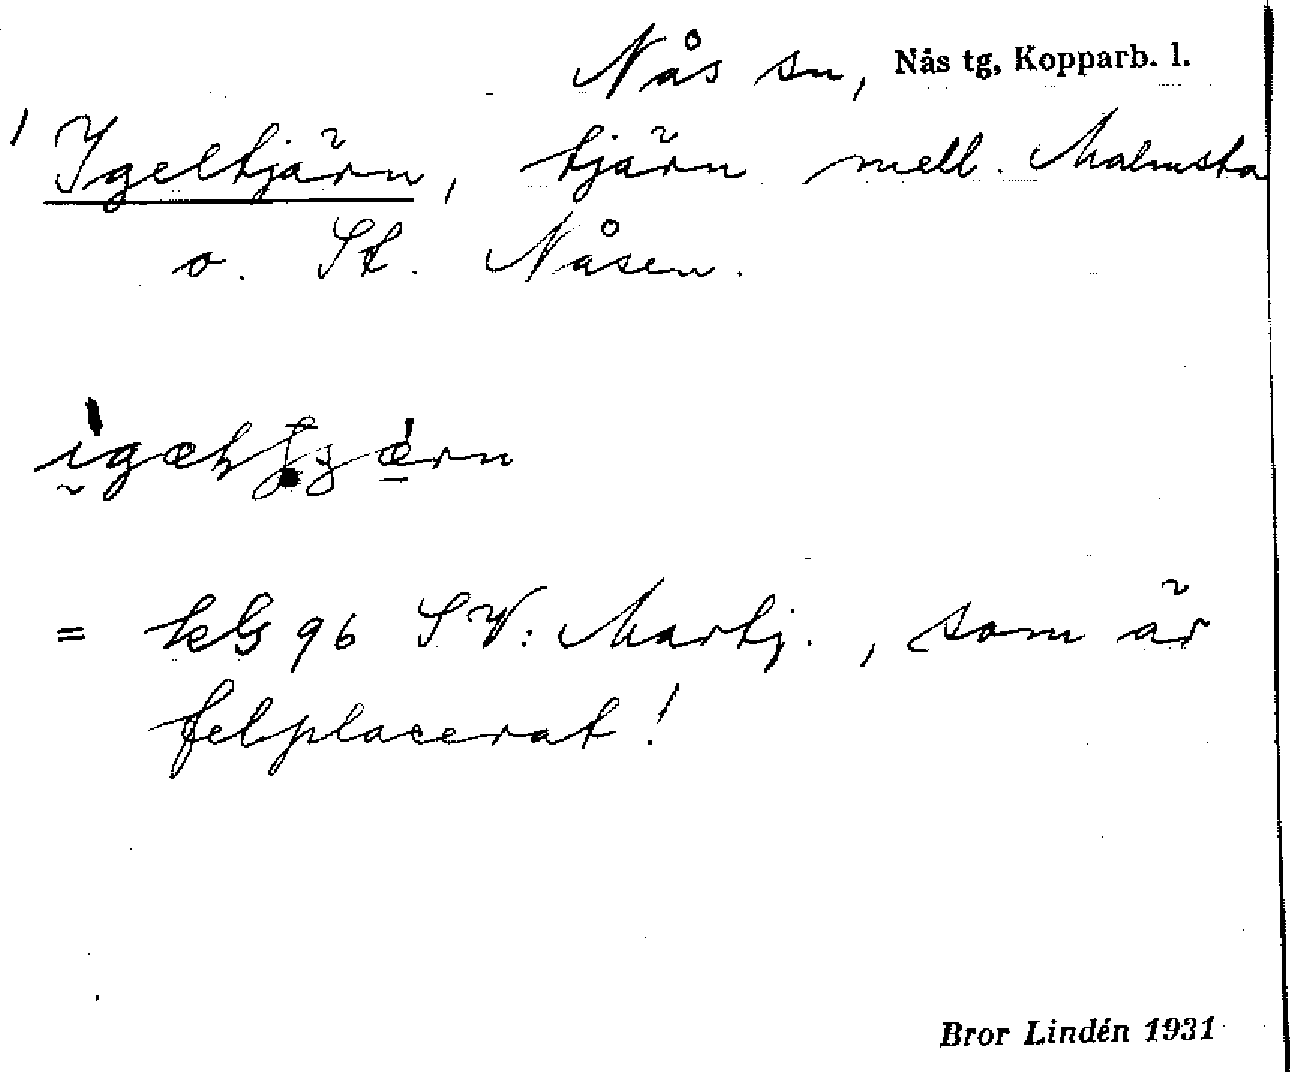 Nås sn, Nås tg, Kopparb. l.
Igeltjärn, tjärn mell. Malmsta
o. St. Nåsen.
= kbs 96 SV: Martj., som är
felplacerat!
Bror Lindén 1931